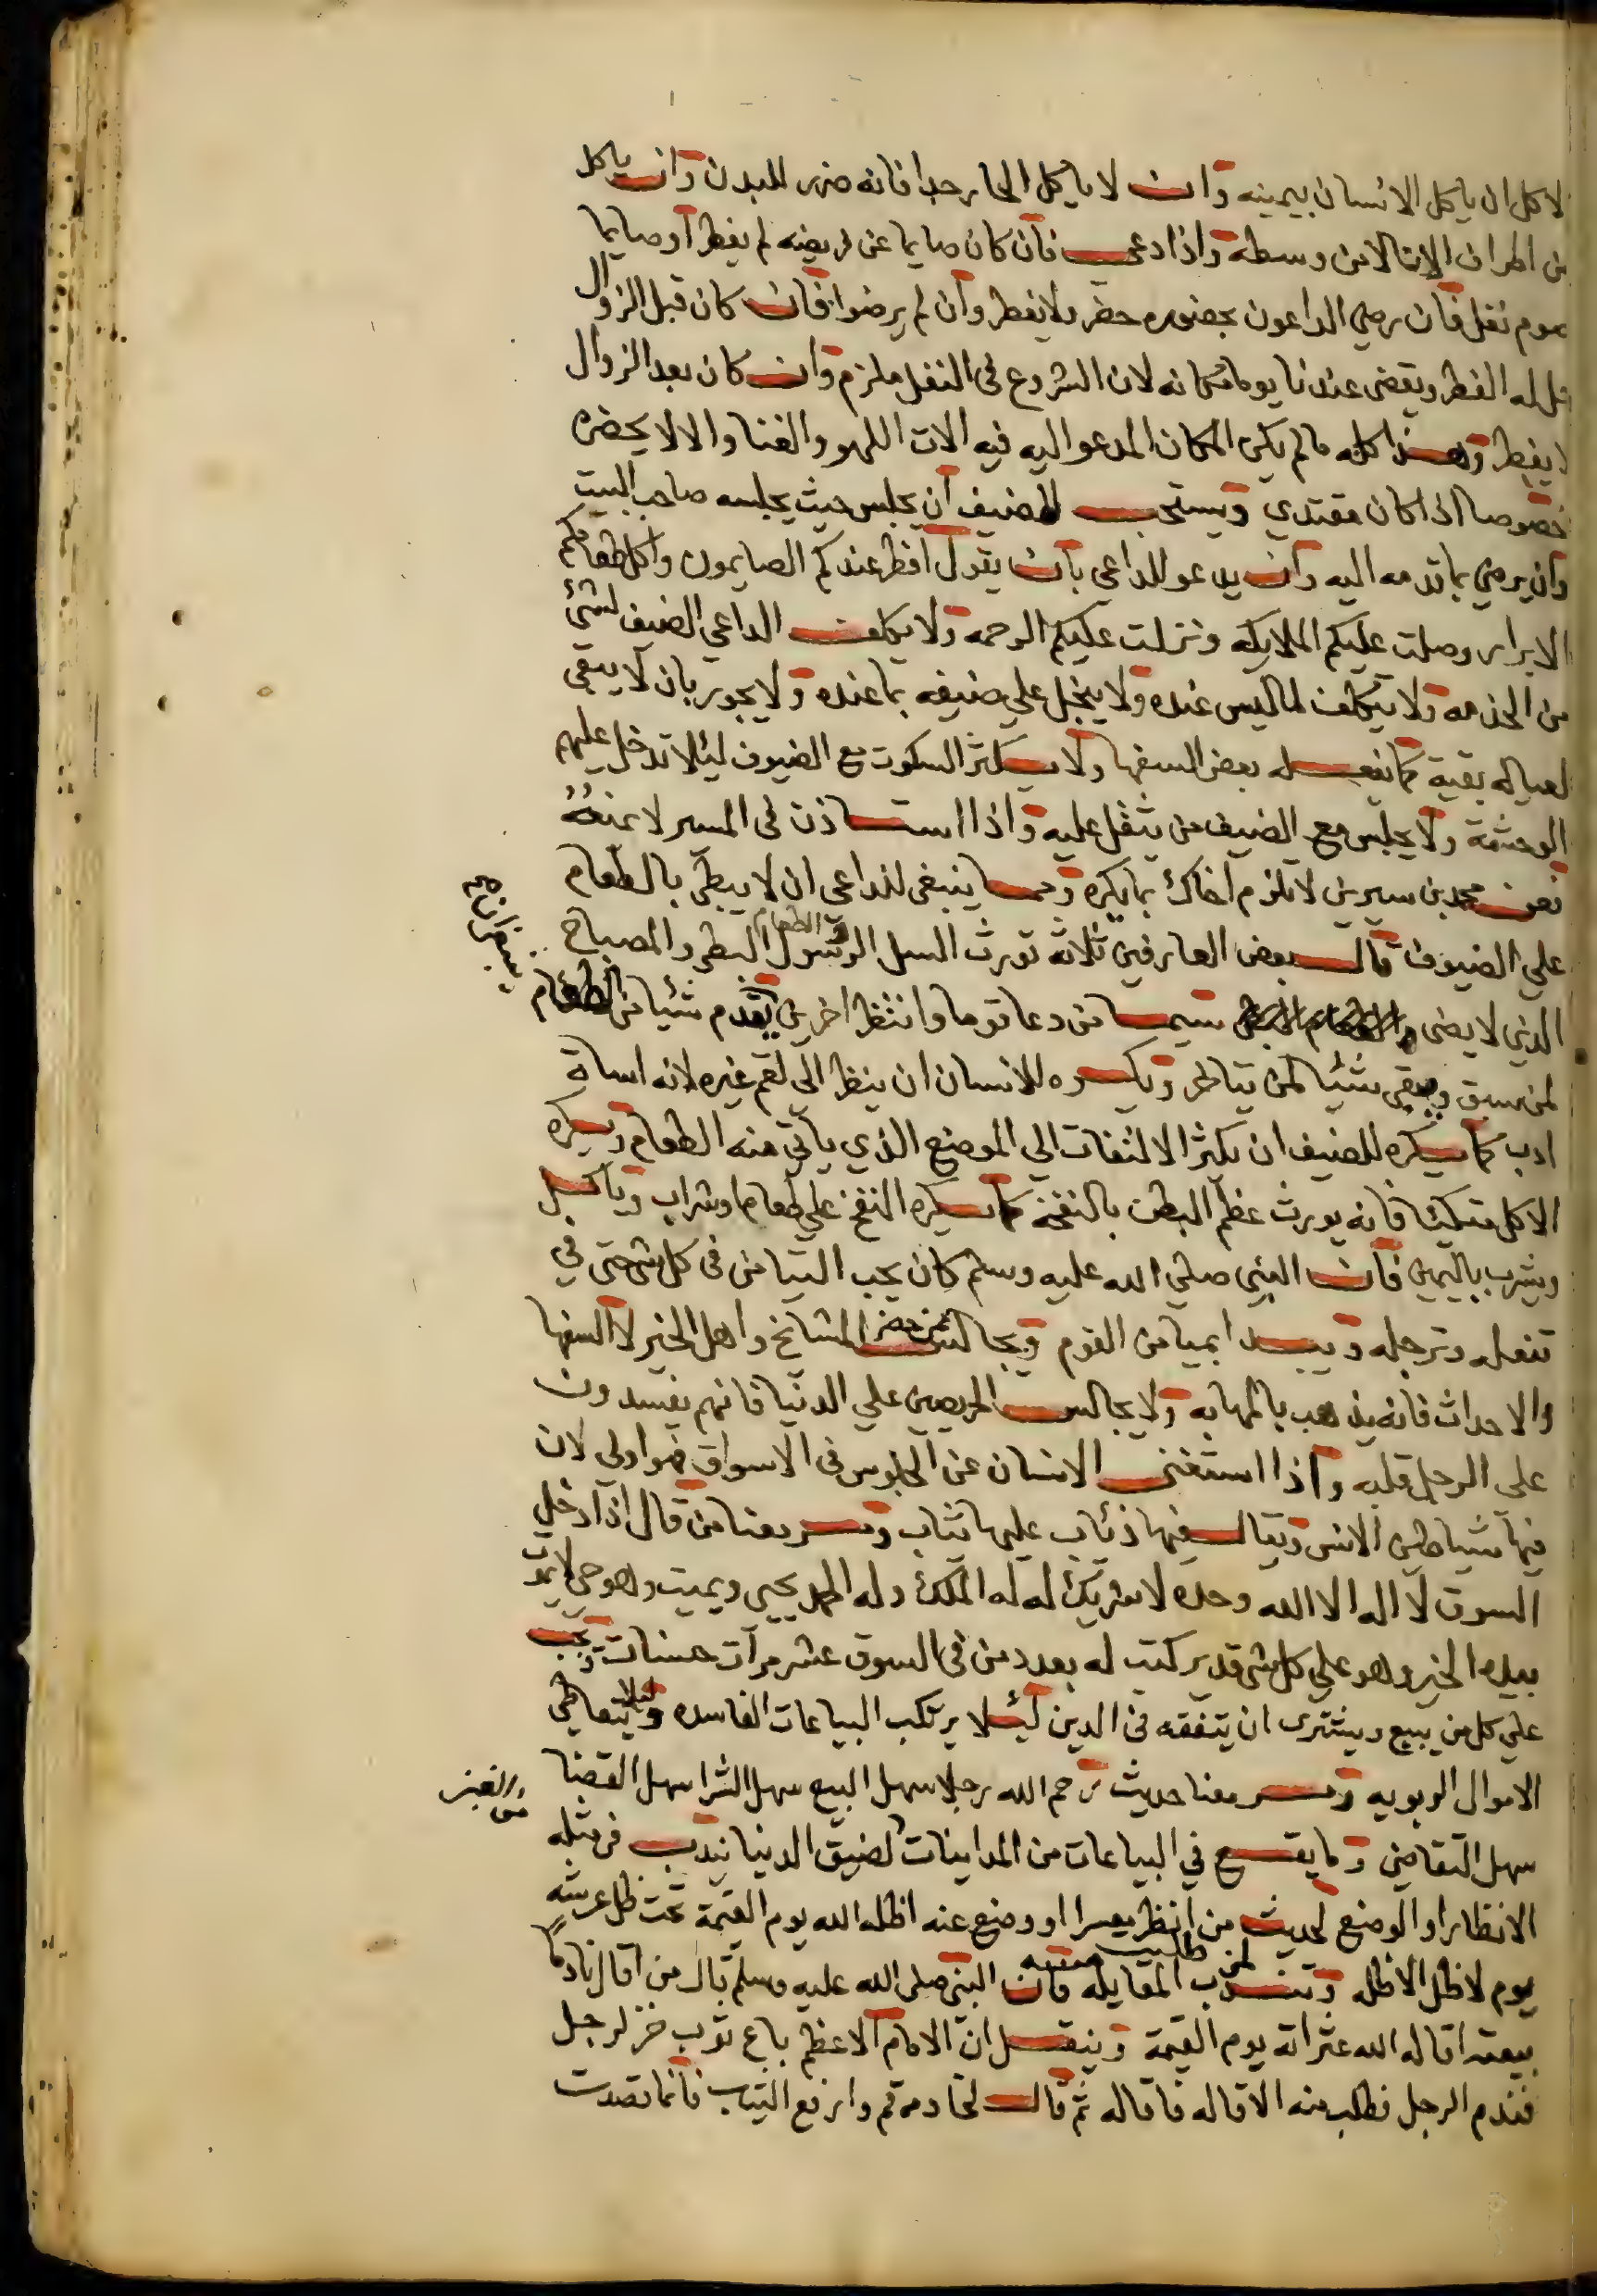 لاكل ان ياكل الانسان بيمينه وان لا ياكل الحار جدا فانه ضرر للبدن وان ياكل
من اطراف الانا لا من وسطه واذا دعي فان كان صايما عن فريضه لم يفطر او صايما
صوم نفل فان رضي الداعون بحضوره حضر ولا يفطر وان لم يرضوا فان كان قبل الزوال
حل له الفطر ويقضى عندنا يوما مكانه لان الشروع في النفل ملزم وان كان بعد الزوال
لا يفطر وهذا كله ما لم يكن المكان المدعو اليه فيه الات اللهو والغنا والا لا يحضره
خصوصا اذا كان مقتدي ويستحب للضيف ان يجلس حيث يجلسه صاحب البيت
وان يرضي بما قدمه اليه وان يدعو للداعي بان يقول افطر عندكم الصايمون واكل طعامكم
الابرار وصلت عليكم الملايكه ونزلت عليكم الرحمه ولا يكلف الداعي الضيف لشئ
من الخدمه ولا يتكلف لما ليس عنده ولا يبخل علي ضيفه بما عنده ولا يجور بان لا يبقى
لعياله بقية كما يفعله بعض السفها ولا يكثر السكوت مع الضيوف ليئلا تدخل عليهم
الوحشة ولا يجلس مع الضيف من يثقل عليه واذا استاذن في المسير لا يمنعه
فعن محمد بن سيرين لا تلزم اخاك بما يكره ومما ينبغي للداعي ان لا يبطي بالطعام
علي الضيوف قال بعض العارفين ثلاثة تورث السل الرسول البطى والمصباح
والطعام
الذي لا يضى سيما من دعا قوما وانتظر اخرين يقدم شيا من الطعام
ينبغي ان
لمن سبق ويبقى شئيا لمن يتاخر ويكره للانسان ان ينظر الي لقم غيره لانه اساة
ادب كما يكره للضيف ان يكثر الالتفات الي الموضع الذي ياتي منه الطعام ويكره
الاكل متكيئا فانه يورث عظم البطن بالنفخة كما يكره النفخ علي طعام او شراب وياكل
ويشرب باليمين فان النبي صلي الله عليه وسلم كان يحب التيامن في كل شي حتى في
تنعله وترجله ويبدا بميامن القوم ويجالس المشايخ واهل الخير لا السفها
ممن حضر
والاحداث فانه يذهب بالمهابه ولا يجالس الحريصين علي الدنيا فانهم يفسدون
على الرجل قلبه واذا استغنى الانسان عن الجلوس في الاسواق فهو اولى لان
فيها شياطين الانس ويقال فيها ذئاب عليها ثياب ومر معنا من قال اذا دخل
السوق لا اله الا الله وحده لا شريك له له الملك وله الحمد يحيى ويميت وهو حي لا يموت
بيده الخير وهو علي كل شي قدير كتب له بعدد من في السوق عشر مرات حسنات ويجب
علي كل من يبيع ويشترى ان يتفقه في الدين ليئلا يرتكب البياعات الفاسده وليلا يتعاطي
الاموال الربويه ومر معنا حديث رحم الله رجلا سهل البيع سهل الشرا سهل القضا
سهل التقاضي وما يقع في البياعات من المداينات لضيق الدنيا يندب في مثله
والغبن
الانظار او الوضع لحديث من انظر معسرا او وضع عنه اظله الله يوم القيمة تحت ظل عرشه
يوم لا ظل الا ظله وتندب المقايله فان النبي صلى الله عليه وسلم قال من اقال نادما
لمن طلبت منه
بيعته اقاله الله عثراته يوم القيمة وينقل ان الامام الاعظم باع ثوب خز لرجل
فندم الرجل فطلب منه الاقاله فاقاله ثم قال لخادمه قم وارفع الثياب فانما قصدت